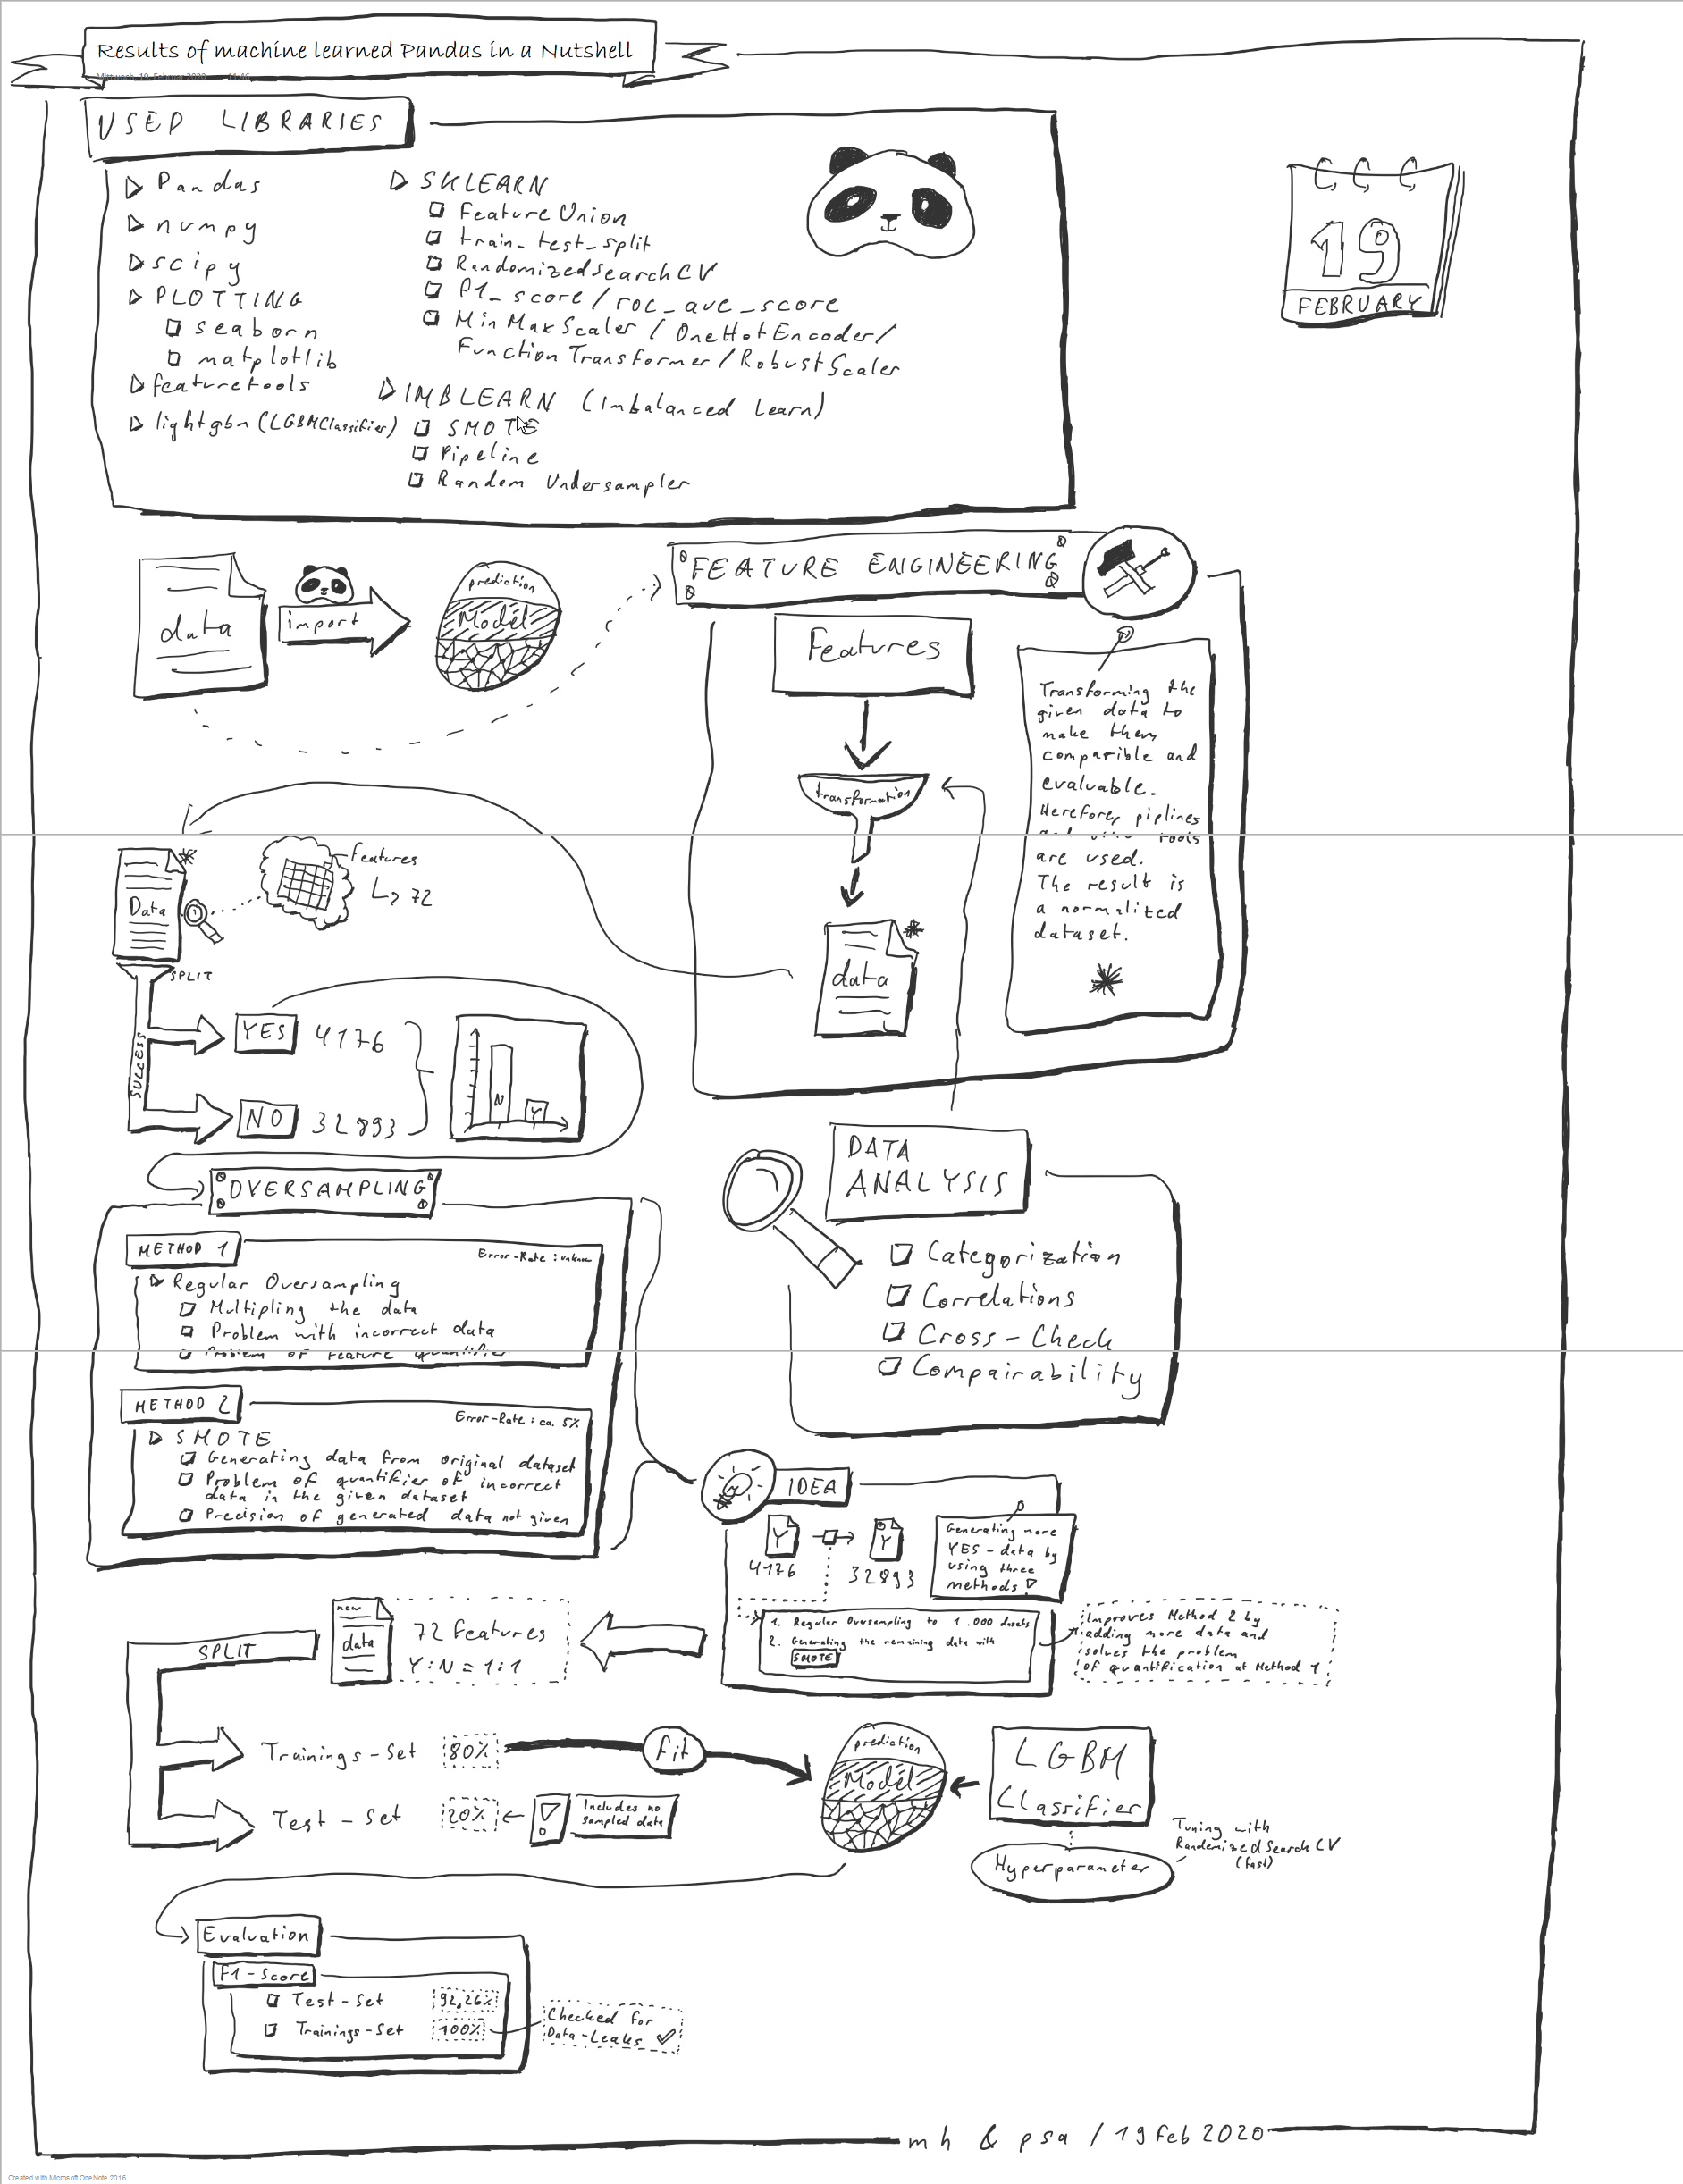 Results of machine learned Pandas in a Nutshell
Mittwoch, 19. Februar 2020 11:46
USED LIBRARIES
Pandas
numpy
scipy
PLOTTING
seaborn
matplotlib
featuretools
lightgbm (LGBMClassifier)
SKLEARN
Feature Union
train_test_split
RandomizedSearchCV
f1_score / roc_auc_score
MinMaxScaler / OneHotEncoder /
FunctionTransformer / RobustScaler
IMBLEARN (Imbalanced Learn)
SMOTE
Pipeline
Random Undersampler
19
FEBRUARY
data
import
prediction
Model
FEATURE ENGINEERING
Features
transformation
data
Transforming the
given data to
make them
comparible and
evaluable.
Herefore, piplines
tools
are used.
The result is
a normalized
dataset.
Data
Features
72
SPLIT
SUCCESS
YES 4176
NO 32893
N
Y
OVERSAMPLING
METHOD 1
Error-Rate : unknown
Regular Oversampling
Multipling the data
Problem with incorrect data
Problem of feature quantifier
METHOD 2
Error-Rate : ca. 5%
SMOTE
Generating data from original dataset
Problem of quantifier of incorrect
data in the given dataset
Precision of generated data not given
DATA
ANALYSIS
Categorization
Correlations
Cross-Check
Compairability
IDEA
Y
4176
Y
32893
Generating more
YES-data by
using three
methods
1. Regular Oversampling to 1.000 dsets
2. Generating the remaining data with
SMOTE
Improves Method 2 by
adding more data and
solves the problem
of quantification at Method 1
new
data
72 features
Y:N = 1:1
SPLIT
Trainings-Set 80%
fit
Test-Set 20%
Includes no
sampled data
prediction
Model
LGBM
Classifier
Hyperparameter
Tuning with
RandomizedSearchCV
(fast)
Evaluation
F1-Score
Test-Set 92,26%
Trainings-Set 100%
Checked for
Data-Leaks
mh & psa / 19 Feb 2020
Created with Microsoft OneNote 2016.